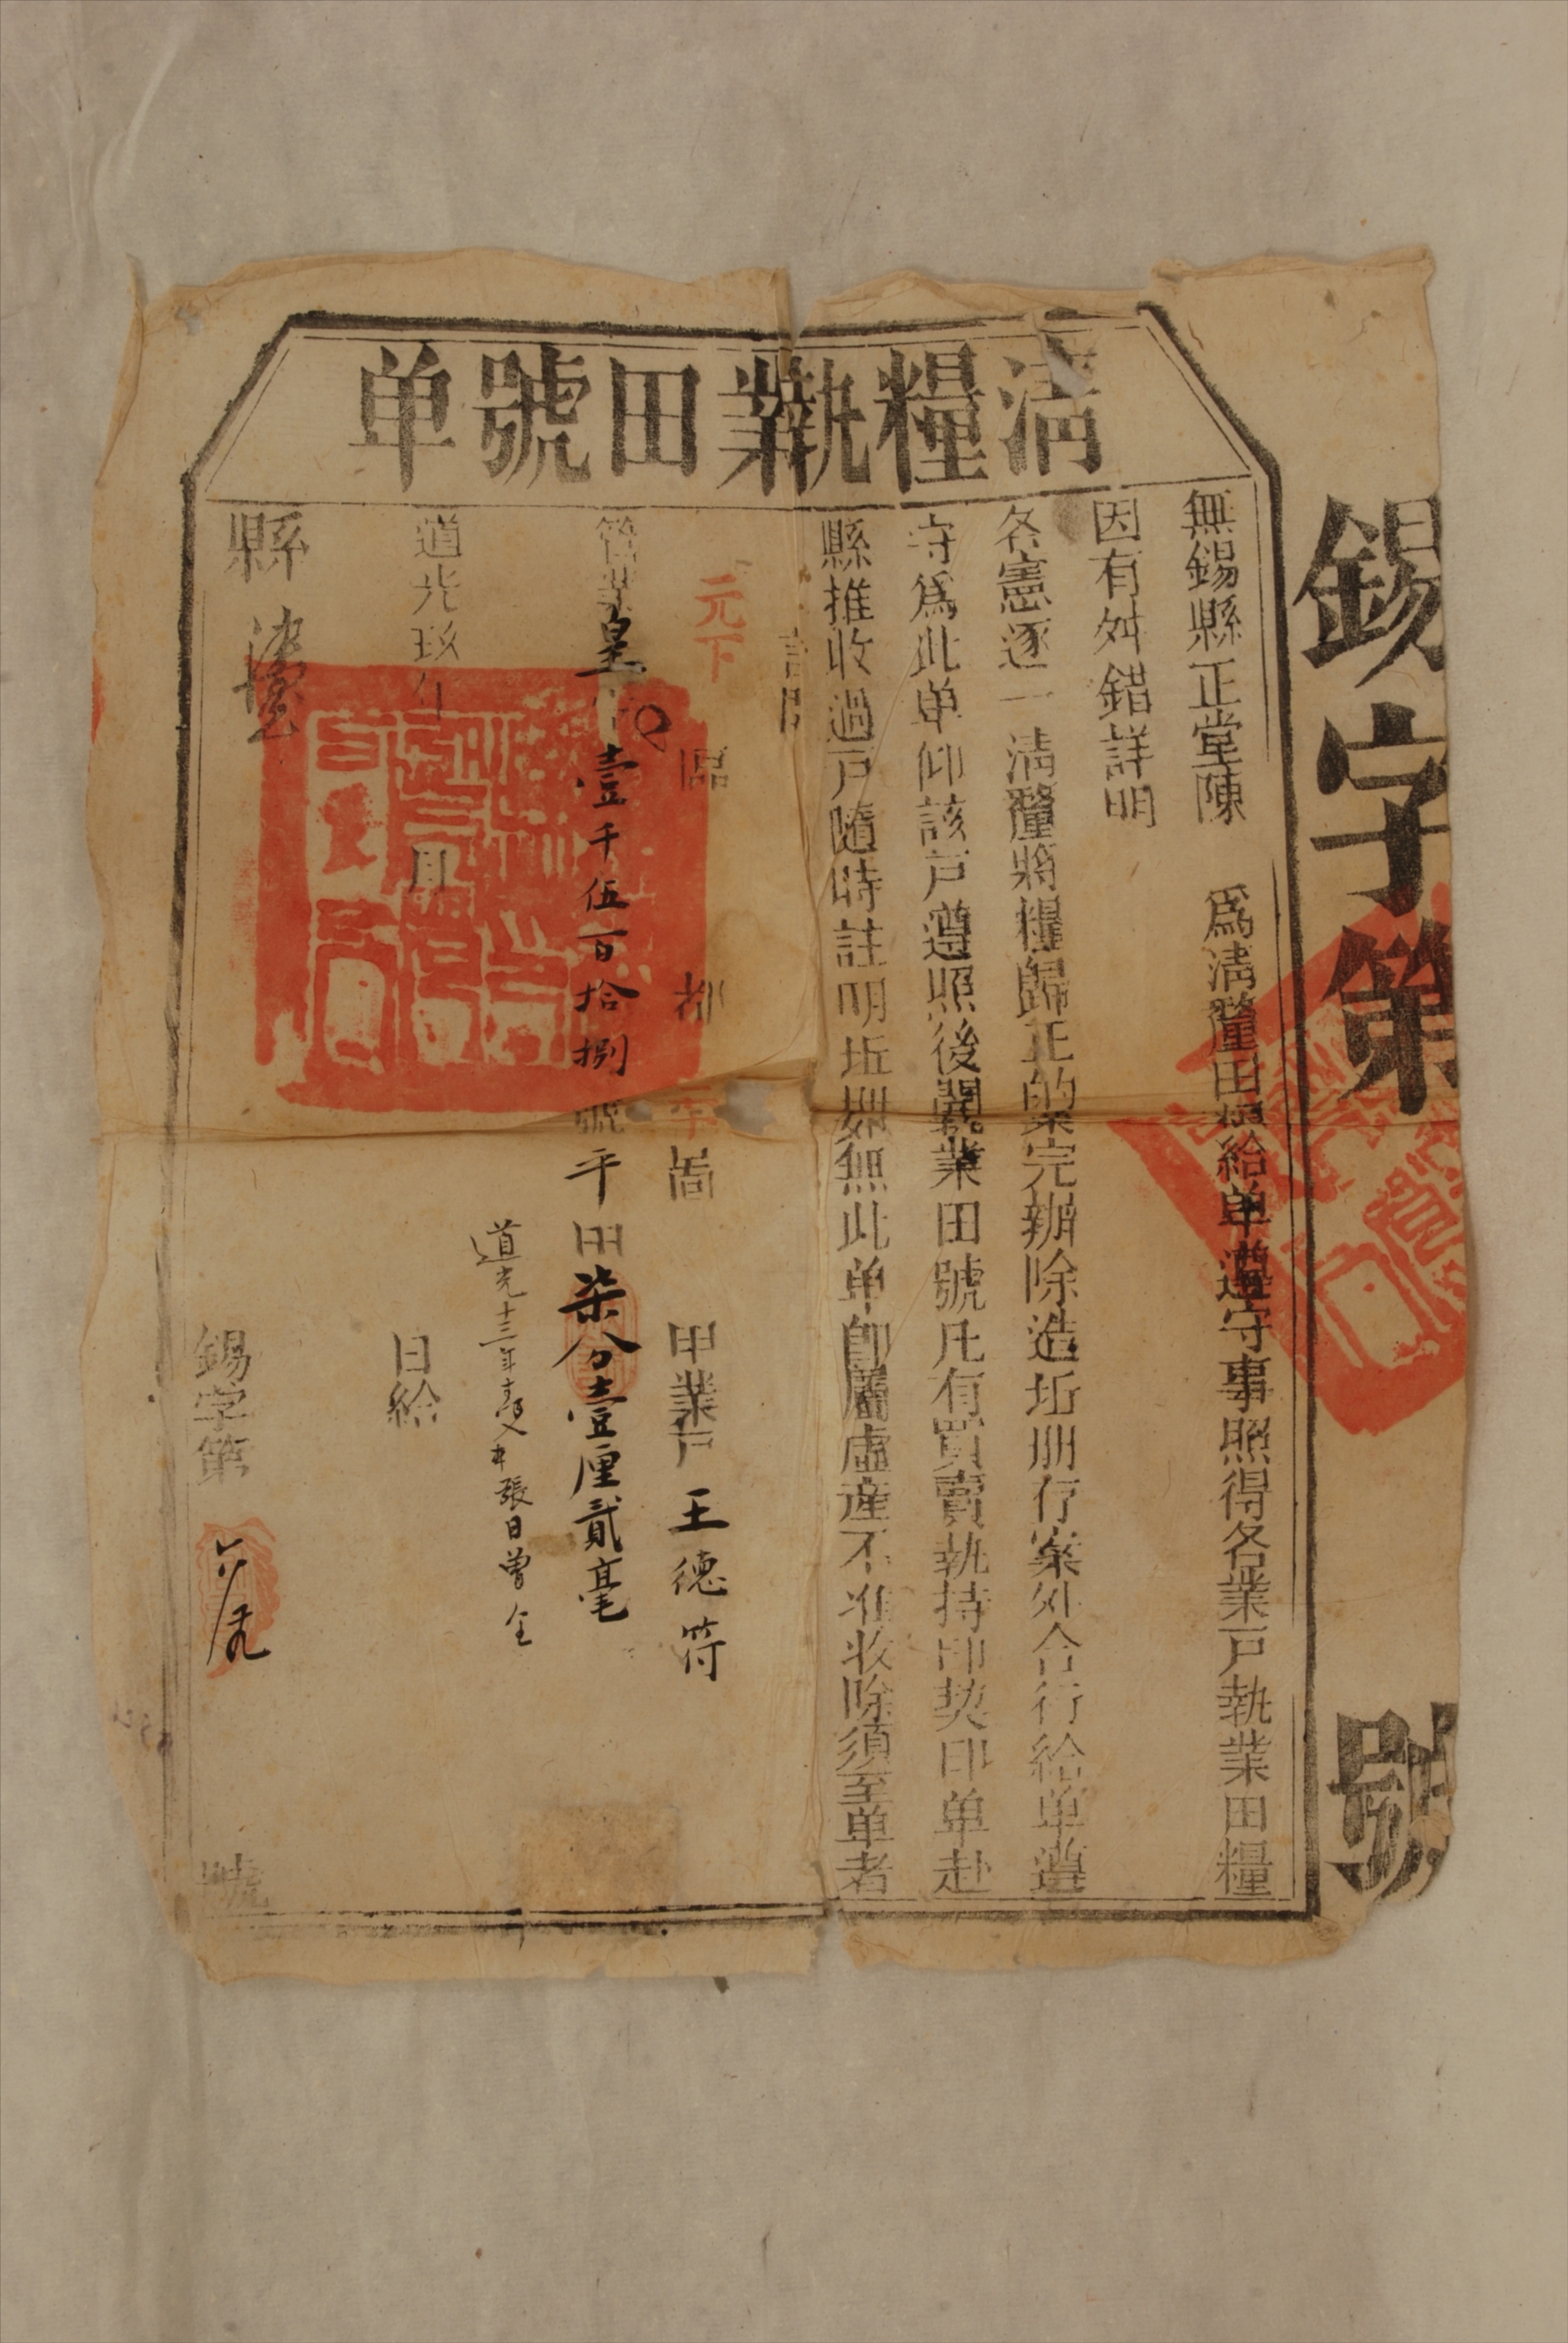 錫字第 號
清糧執業田號单
無錫縣正堂陳 為清釐田糧給单遵守事照得各業戶執業田糧
因有舛錯詳明
各憲逐一清釐將糧歸正的業完辦除造坵冊存案外合行給单遵
守為此单仰該戶遵照後開業田號凡有買賣執持印契印单赴
縣推收過戶隨時註明坵冊無此单即屬虛產不准收除須至单者
計開
元下 區 都 啚 甲業戶王德符
管業皇字壹千伍百拾捌號平田柒分壹厘貳毫
道光十三年 張日曾
道光玖年 月 日給
縣
錫字第 號